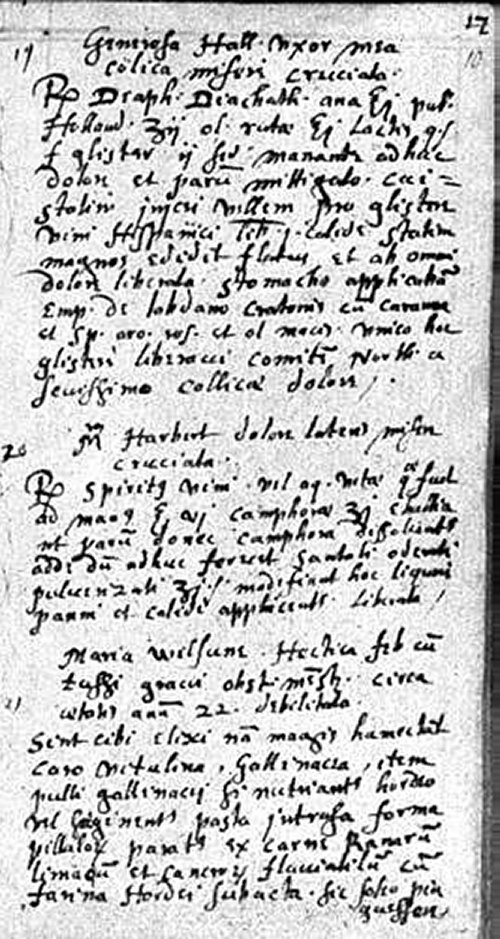 17
19 Generosa Hall uxor mea
10
colica miseri crucciata.
℞ Diaph. Diacath. ana ℥j pul.
Hellow. ʒij ol. rutæ ℥j Lactis q.s
f glister ij sed manante adhuc
dolore et parū mittigato. cæci=
stolim injeci unum pro glistere
vini Hispanici lib j. calide statim
magnos ededit flatus, et ab omni
dolore liberata. stomacho applicabā
Emp. de labdano Cratonis cū Caranna
et sp. aro. ros. et ol macis. unico hoc
glisteri liberavi Comitē North. a
sevissimo collicæ dolore.
20 Harbert dolore lateris miserè
crucciata.
℞ Spiritꝰ vini. vel aq. vitæ
ad mag ℥ vj camphoræ ʒj
ut parū donec camphora dissolvatꝰ
adde dū adhuc fervet Santali
pulverizati modifiant hoc liquori
panni et calide applicentꝰ. Liberata
Maria Wilsune. Hectica feb cū
tussi gravi obst. mēsb. circa
21 ætatis anū 22. debilitata.
Sint cibi elixi nā magis humectāt
Caro vitulina, Gallinacea, item
pulli gallinacij si nutriantꝰ hordeo
vel saginentꝰ pasta intrusa forma
pillaloꝝ paratꝰ ex carne Ranarū
limacū et Cancroꝝ fluviatiliū cū
farina Hordei subacta. sic soleo pin
guessere